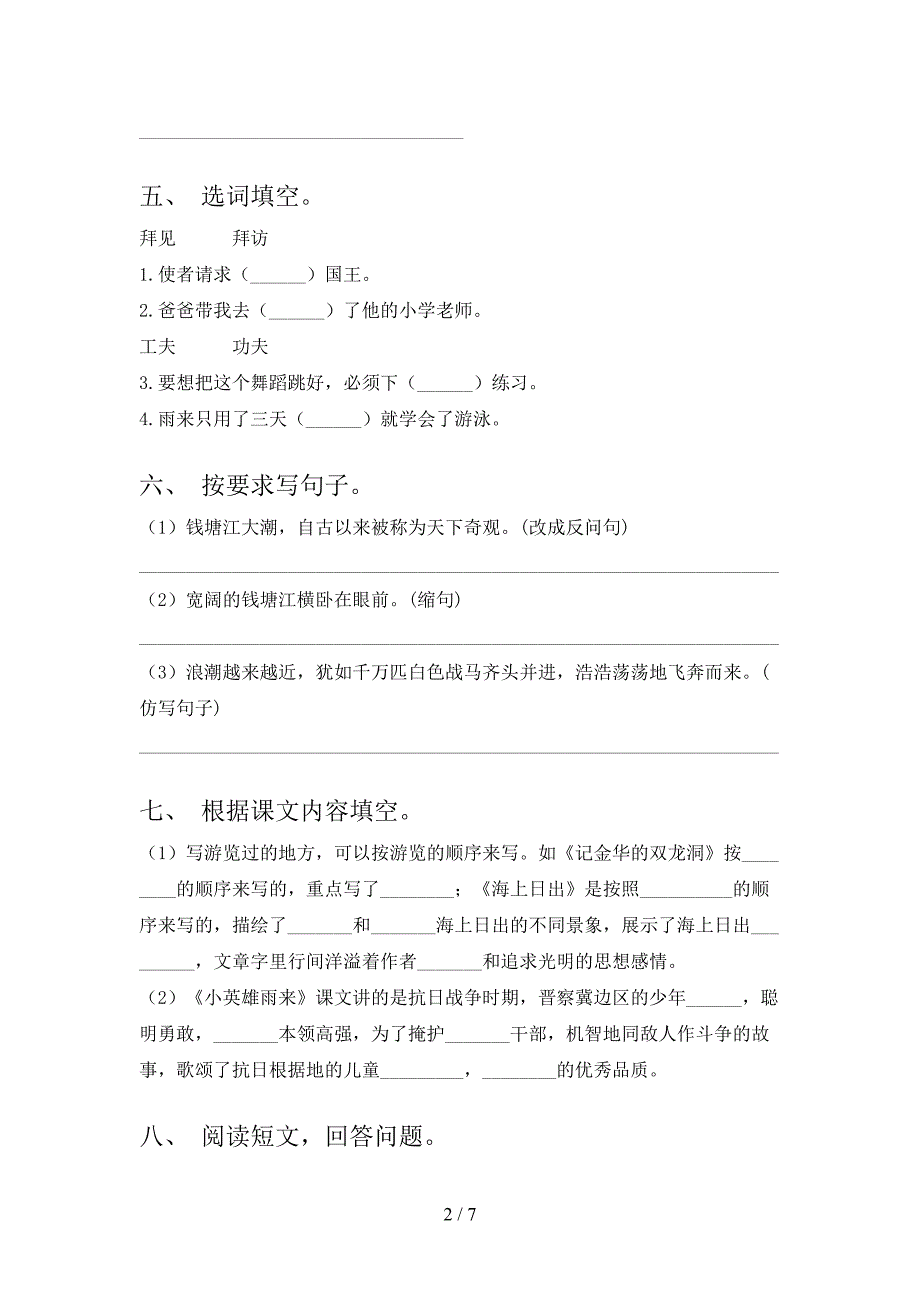 __________________________________
五、 选词填空。
拜见      拜访
1.使者请求（______）国王。
2.爸爸带我去（______）了他的小学老师。
工夫      功夫
3.要想把这个舞蹈跳好，必须下（______）练习。
4.雨来只用了三天（______）就学会了游泳。
六、 按要求写句子。
（1）钱塘江大潮，自古以来被称为天下奇观。(改成反问句)
____________________________________________________________________
（2）宽阔的钱塘江横卧在眼前。(缩句)
____________________________________________________________________
（3）浪潮越来越近，犹如千万匹白色战马齐头并进，浩浩荡荡地飞奔而来。(
仿写句子)
____________________________________________________________________
七、 根据课文内容填空。
（1）写游览过的地方，可以按游览的顺序来写。如《记金华的双龙洞》按____
____的顺序来写的，重点写了________；《海上日出》是按照__________的顺
序来写的，描绘了_______和_______海上日出的不同景象，展示了海上日出___
______，文章字里行间洋溢着作者_______和追求光明的思想感情。
（2）《小英雄雨来》课文讲的是抗日战争时期，晋察冀边区的少年______，聪
明勇敢，_______本领高强，为了掩护_______干部，机智地同敌人作斗争的故
事，歌颂了抗日根据地的儿童_________，________的优秀品质。
八、 阅读短文，回答问题。
2 / 7